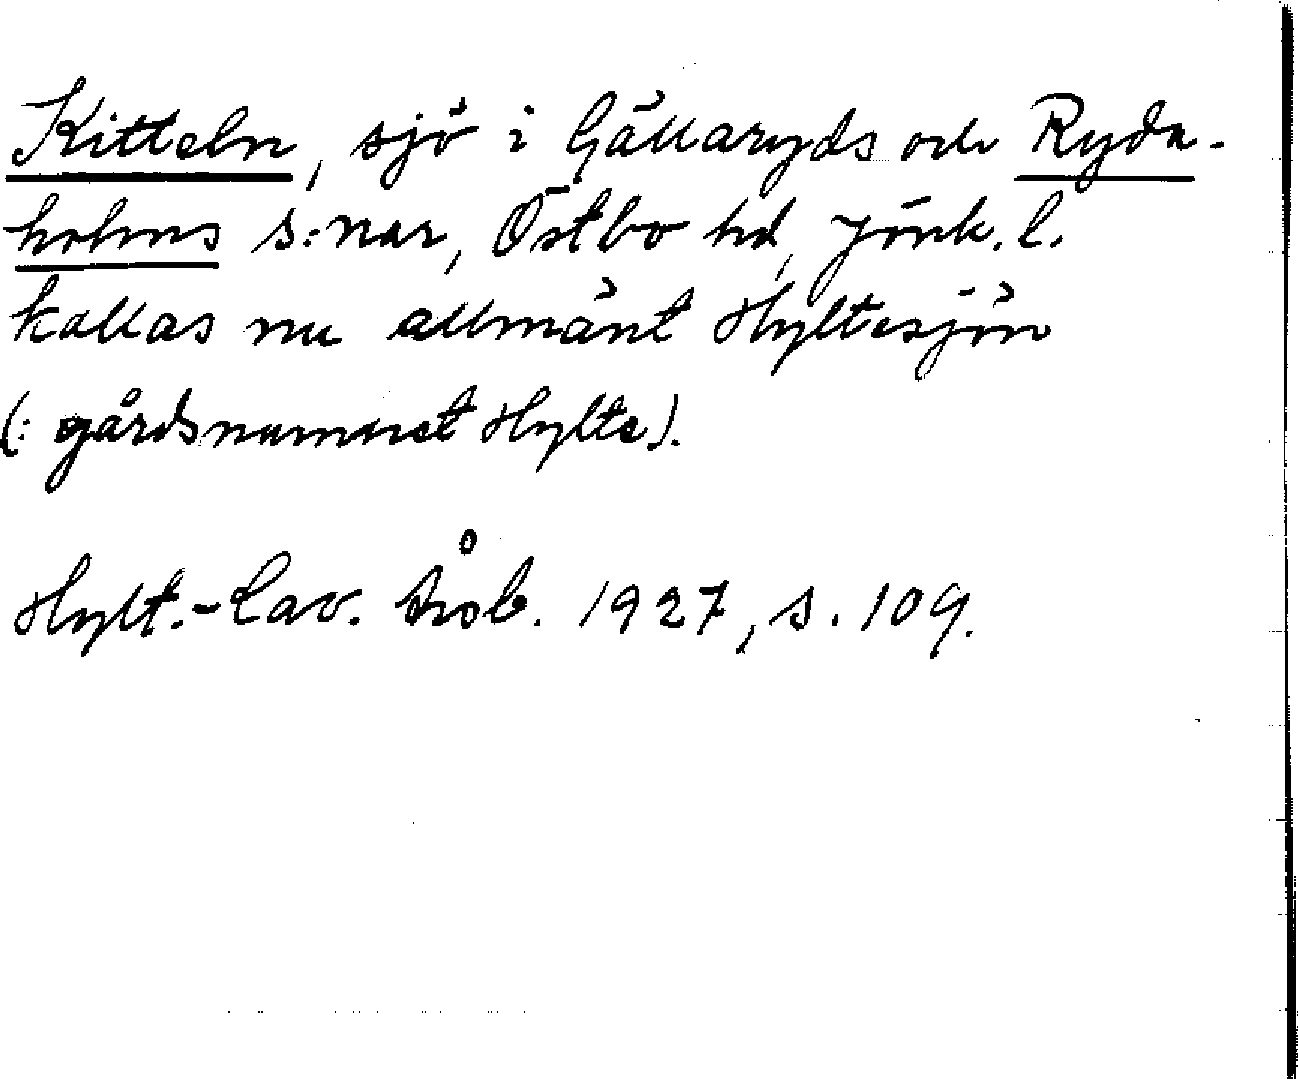 Kitteln, sjö i Gällaryds och Ryda-
holms s:nar, Östbo hd, Jönk. l.
kallas nu allmänt Hyltesjön
(: gårdsnamnet Hylte).
Hylt.-Cav. Årsb. 1927, s. 109.